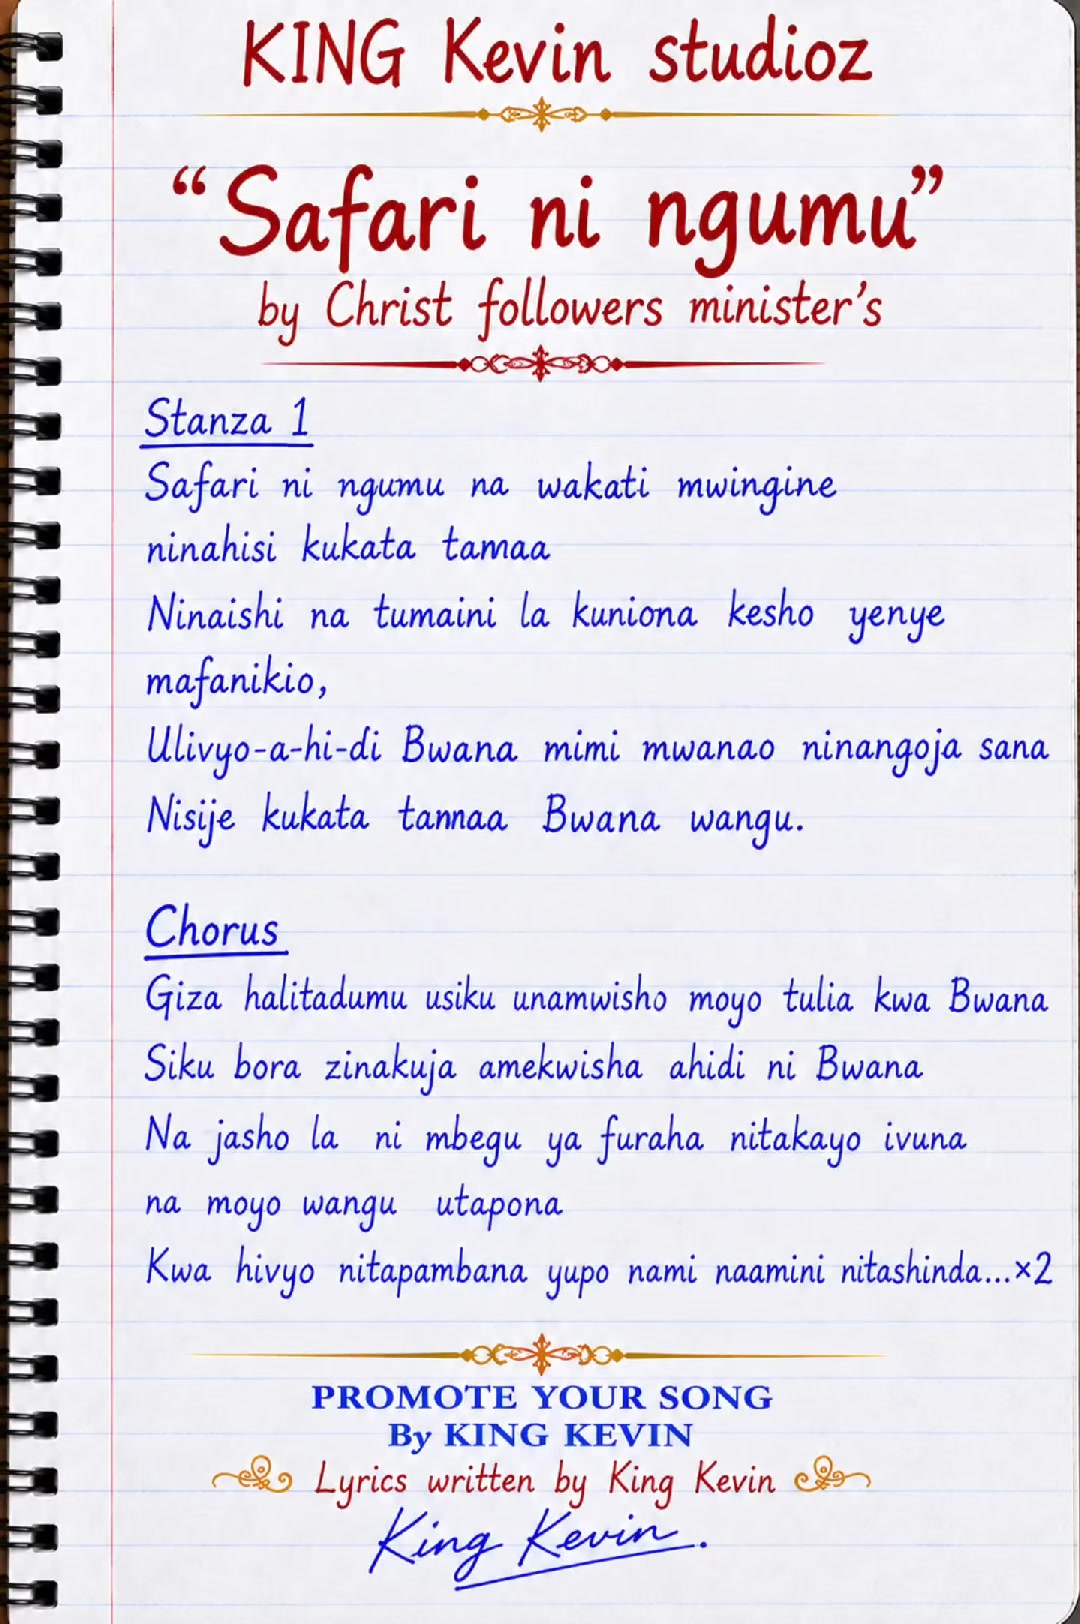 KING Kevin studioz
“Safari ni ngumu”
by Christ followers minister’s
Stanza 1
Safari ni ngumu na wakati mwingine
ninahisi kukata tamaa
Ninaishi na tumaini la kuniona kesho yenye
mafanikio,
Ulivyo-a-hi-di Bwana mimi mwanao ninangoja sana
Nisije kukata tannaa Bwana wangu.
Chorus
Giza halitadumu usiku unamwisho moyo tulia kwa Bwana
Siku bora zinakuja amekwisha ahidi ni Bwana
Na jasho la ni mbegu ya furaha nitakayo ivuna
na moyo wangu utapona
Kwa hivyo nitapambana yupo nami naamini nitashinda...×2
PROMOTE YOUR SONG
By KING KEVIN
Lyrics written by King Kevin
King Kevin.